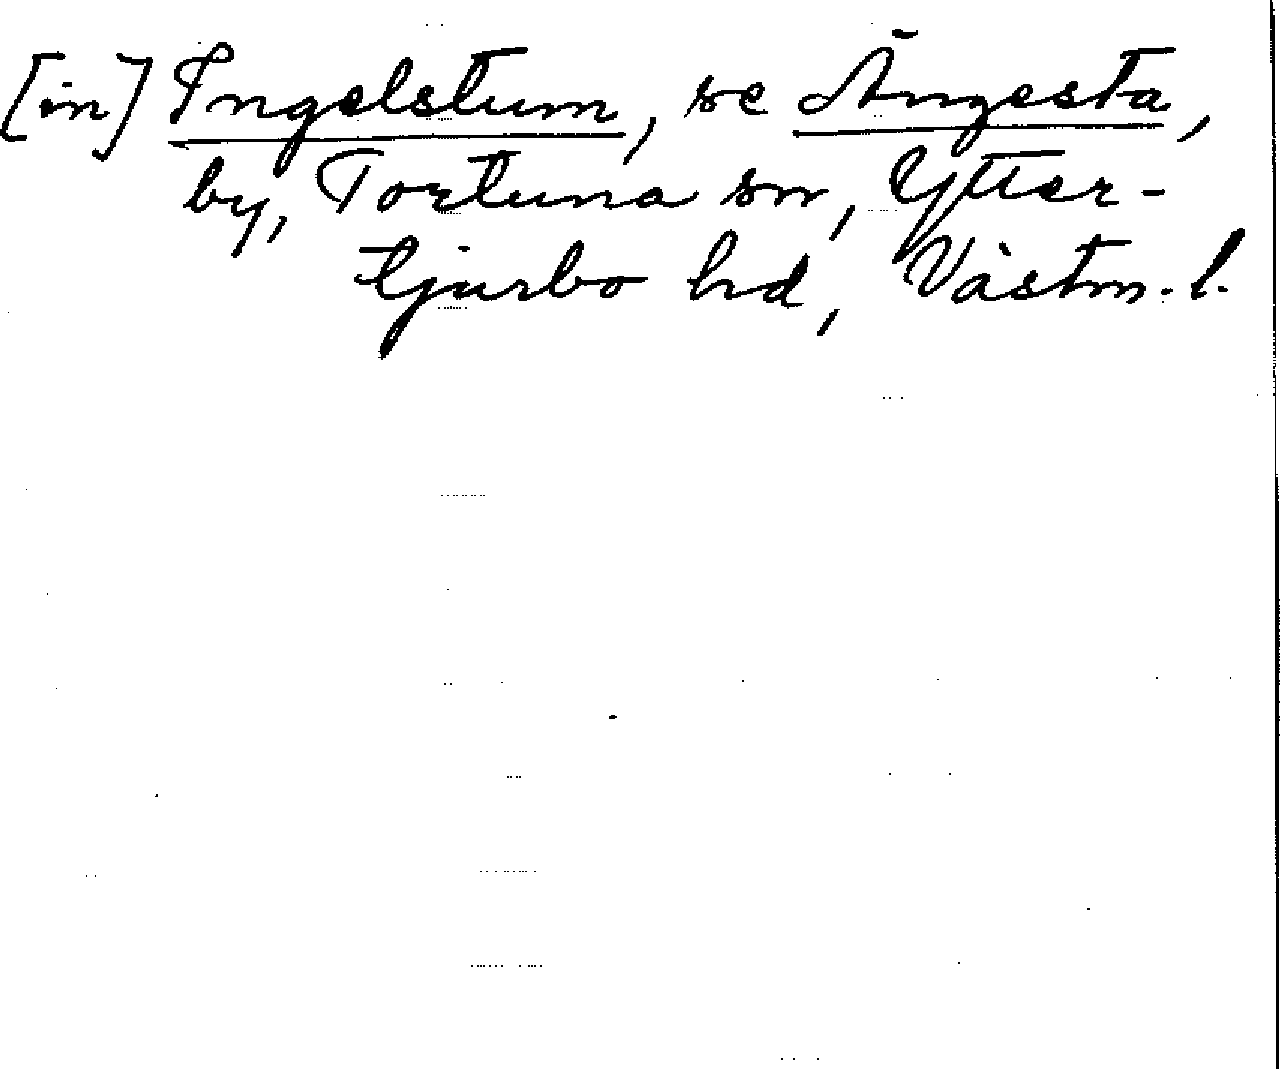 [in] Ingelstum, se Ängesta,
by, Tortuna sn, Ytter-
tjurbo hd, Västm. l.